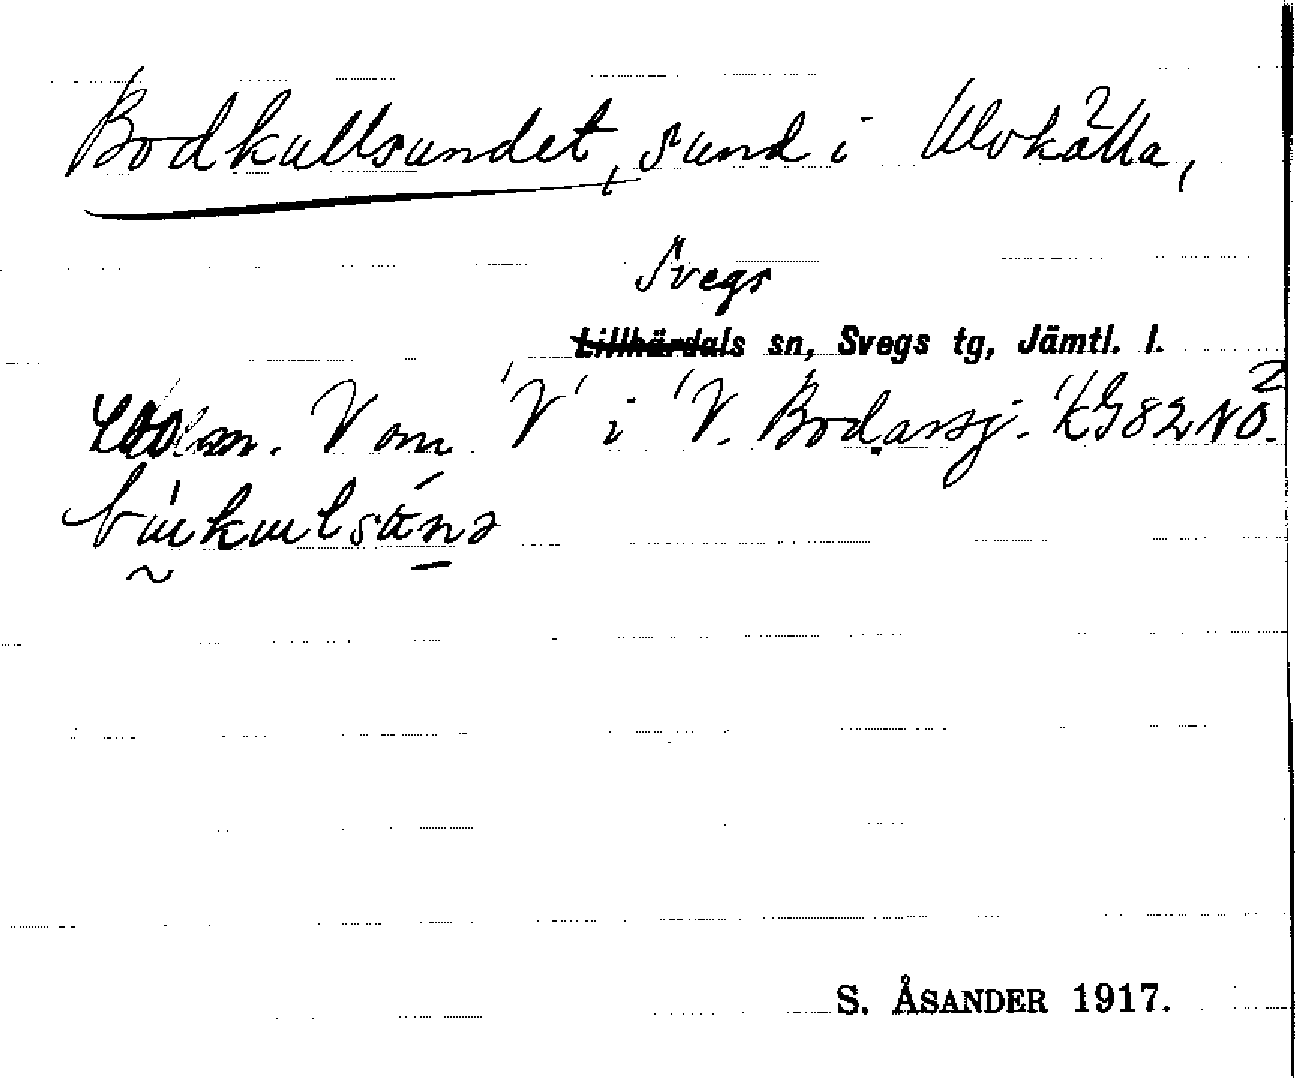 Bodkullsundet, sund i Ulvkälla,
Svegs
Lillhärdals sn, Svegs tg, Jämtl. l.
400 m. V om 'V' i 'V. Bodarsj.' KG 82 NÖ 2
S. ÅSANDER 1917.